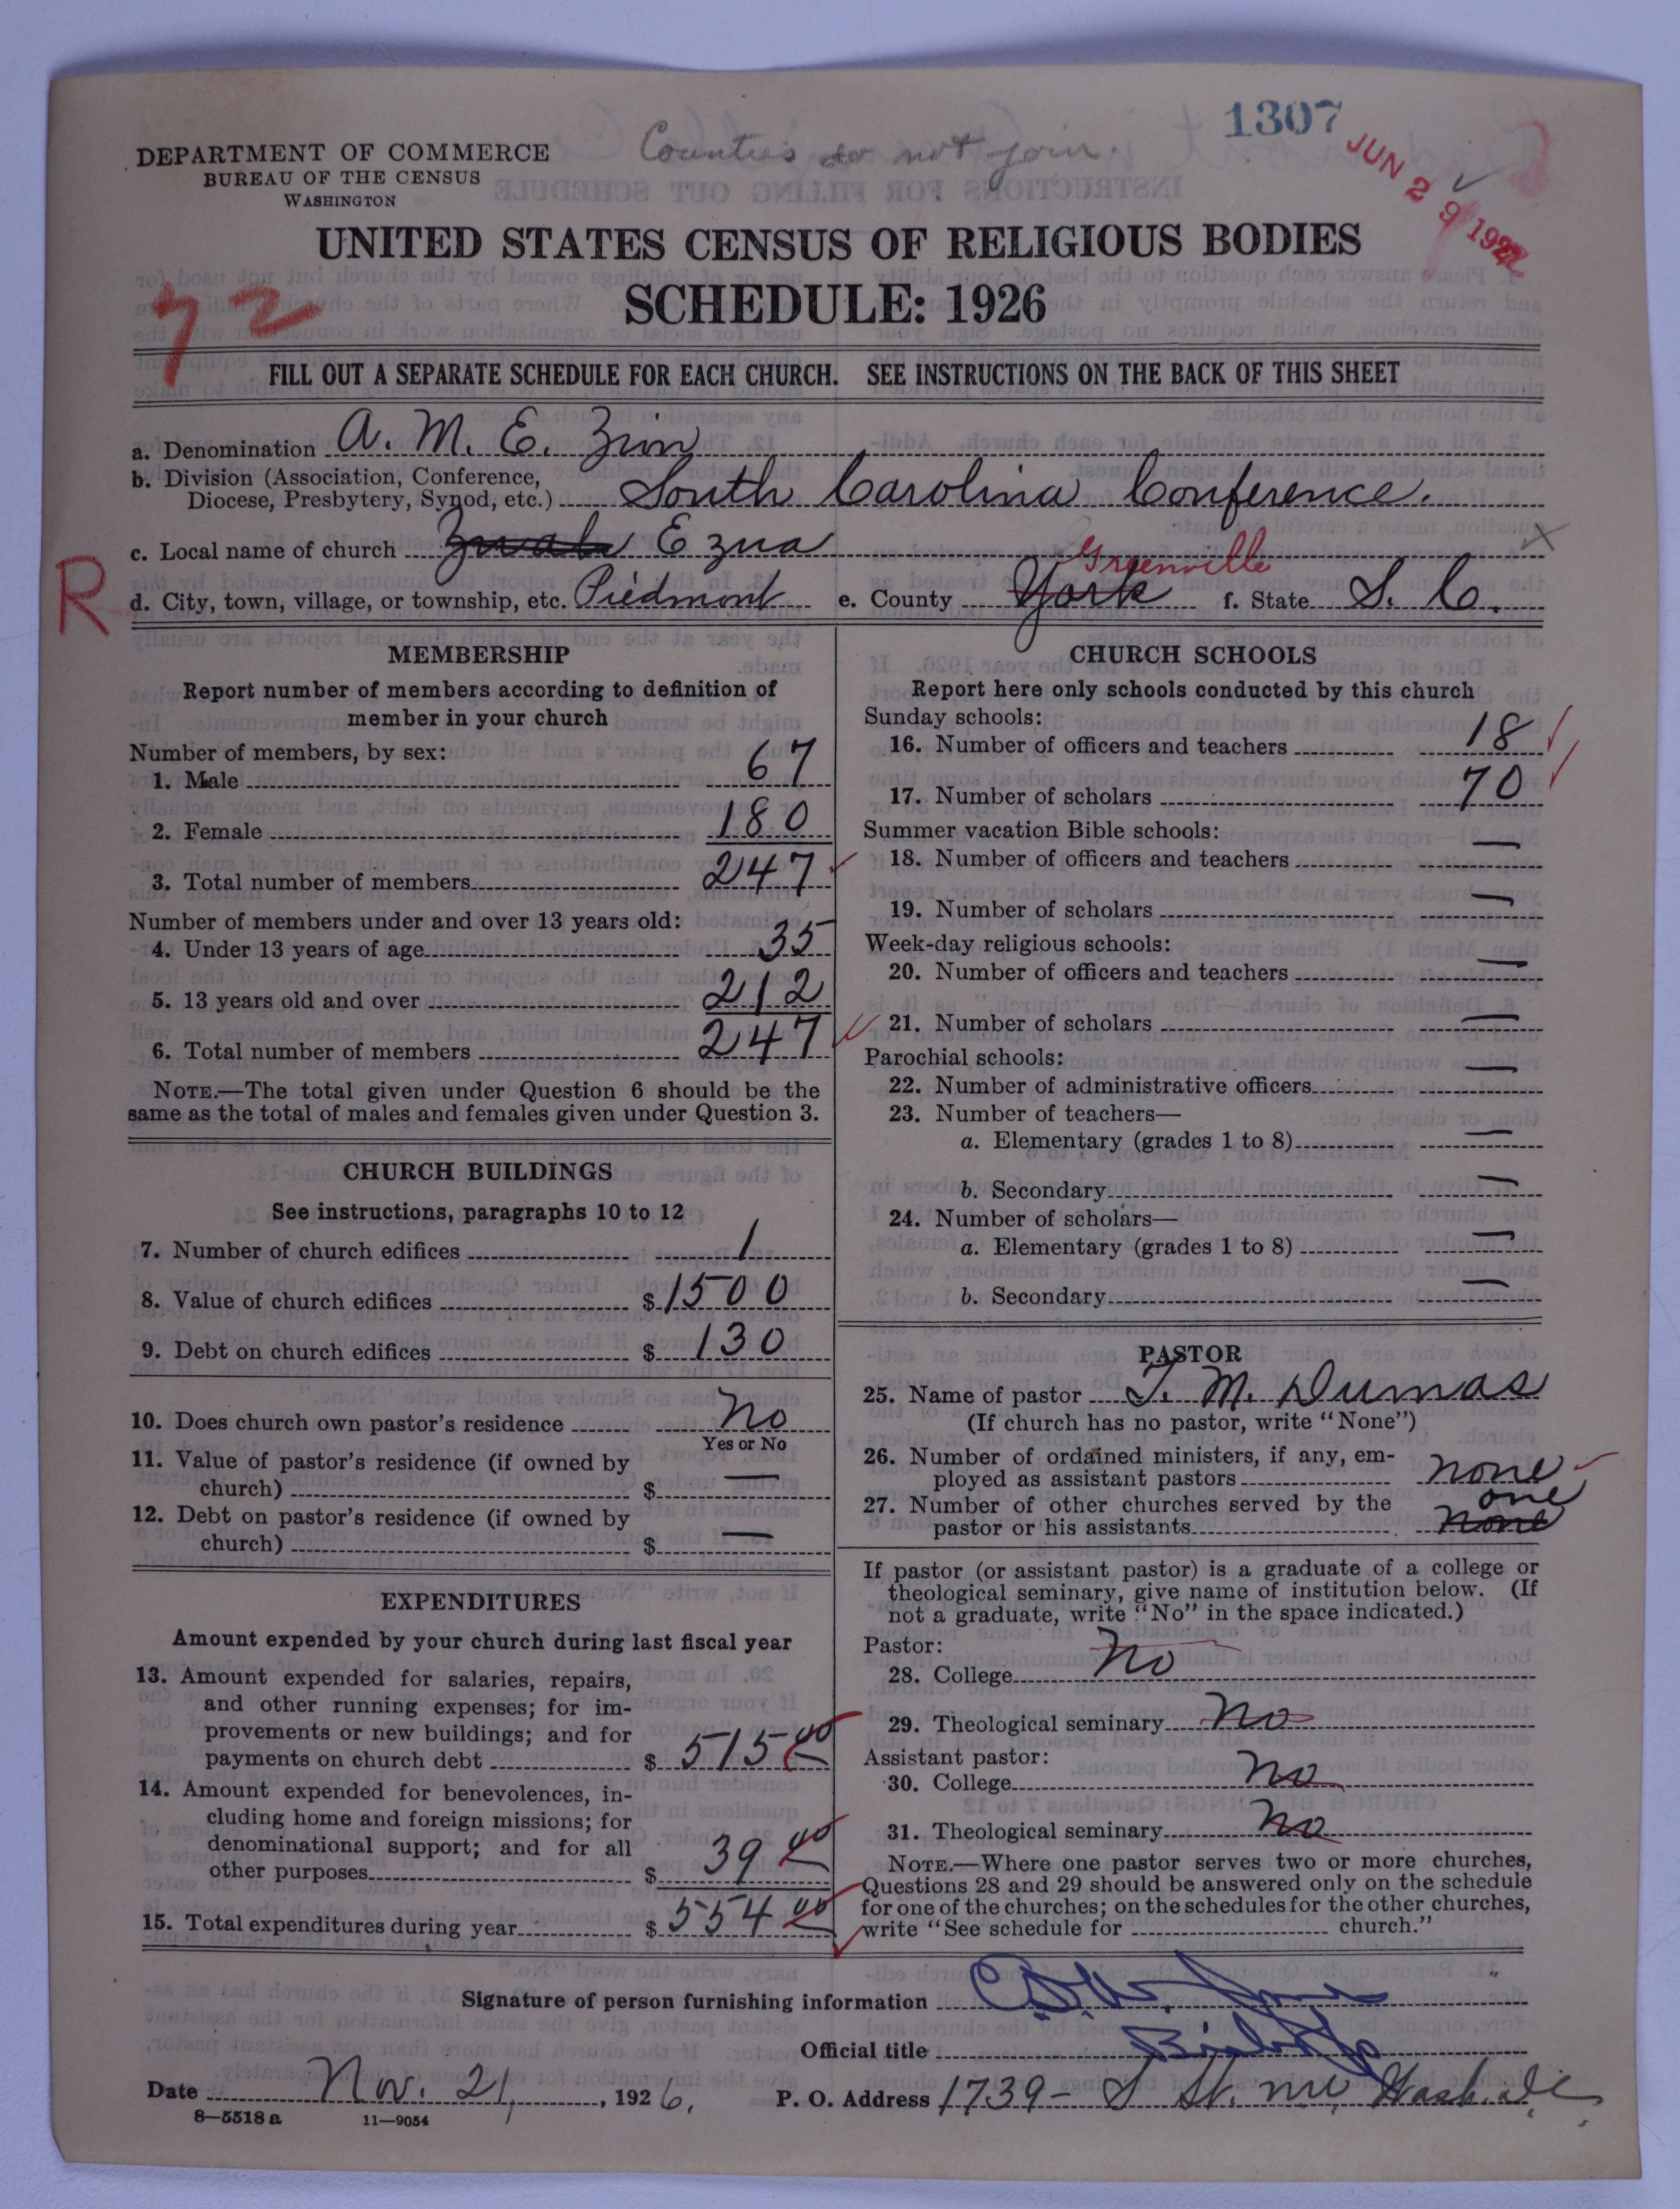 1307
Counties do not join.
JUN 29 192
DEPARTMENT OF COMMERCE
BUREAU OF THE CENSUS
WASHINGTON
UNITED STATES CENSUS OF RELIGIOUS BODIES
SCHEDULE: 1926
72
FILL OUT A SEPARATE SCHEDULE FOR EACH CHURCH. SEE INSTRUCTIONS ON THE BACK OF THIS SHEET
a. Denomination A. M. E. Zion
b. Division (Association, Conference,
Diocese, Presbytery, Synod, etc.) South Carolina Conference.
c. Local name of church Ezna
R
Greenville
d. City, town, village, or township, etc. Piedmont e. County York f. State S. C.
MEMBERSHIP
Report number of members according to definition of
member in your church
Number of members, by sex:
1. Male 67
2. Female 180
3. Total number of members 247
Number of members under and over 13 years old:
4. Under 13 years of age 35
5. 13 years old and over 212
6. Total number of members 247
NOTE.—The total given under Question 6 should be the
same as the total of males and females given under Question 3.
CHURCH BUILDINGS
See instructions, paragraphs 10 to 12
7. Number of church edifices 1
8. Value of church edifices $ 1500
9. Debt on church edifices $ 130
10. Does church own pastor's residence No
Yes or No
11. Value of pastor's residence (if owned by
church) $ —
12. Debt on pastor's residence (if owned by
church) $ —
EXPENDITURES
Amount expended by your church during last fiscal year
13. Amount expended for salaries, repairs,
and other running expenses; for im-
provements or new buildings; and for
payments on church debt $ 515 00
14. Amount expended for benevolences, in-
cluding home and foreign missions; for
denominational support; and for all
other purposes $ 39 00
15. Total expenditures during year $ 554 00
CHURCH SCHOOLS
Report here only schools conducted by this church
Sunday schools:
16. Number of officers and teachers 18
17. Number of scholars 70
Summer vacation Bible schools:
18. Number of officers and teachers —
19. Number of scholars —
Week-day religious schools:
20. Number of officers and teachers —
21. Number of scholars —
Parochial schools:
22. Number of administrative officers —
23. Number of teachers—
a. Elementary (grades 1 to 8) —
b. Secondary —
24. Number of scholars—
a. Elementary (grades 1 to 8) —
b. Secondary —
PASTOR
25. Name of pastor T. M. Dumas
(If church has no pastor, write "None")
26. Number of ordained ministers, if any, em-
ployed as assistant pastors none
27. Number of other churches served by the one
pastor or his assistants none
If pastor (or assistant pastor) is a graduate of a college or
theological seminary, give name of institution below. (If
not a graduate, write "No" in the space indicated.)
Pastor:
28. College No
29. Theological seminary No
Assistant pastor:
30. College No
31. Theological seminary No
NOTE.—Where one pastor serves two or more churches,
Questions 28 and 29 should be answered only on the schedule
for one of the churches; on the schedules for the other churches,
write "See schedule for church."
Signature of person furnishing information
Official title Bishop
Date Nov. 21, 1926. P. O. Address 1739 - S St. NW, Wash. D.C.
8—5518a 11—9054